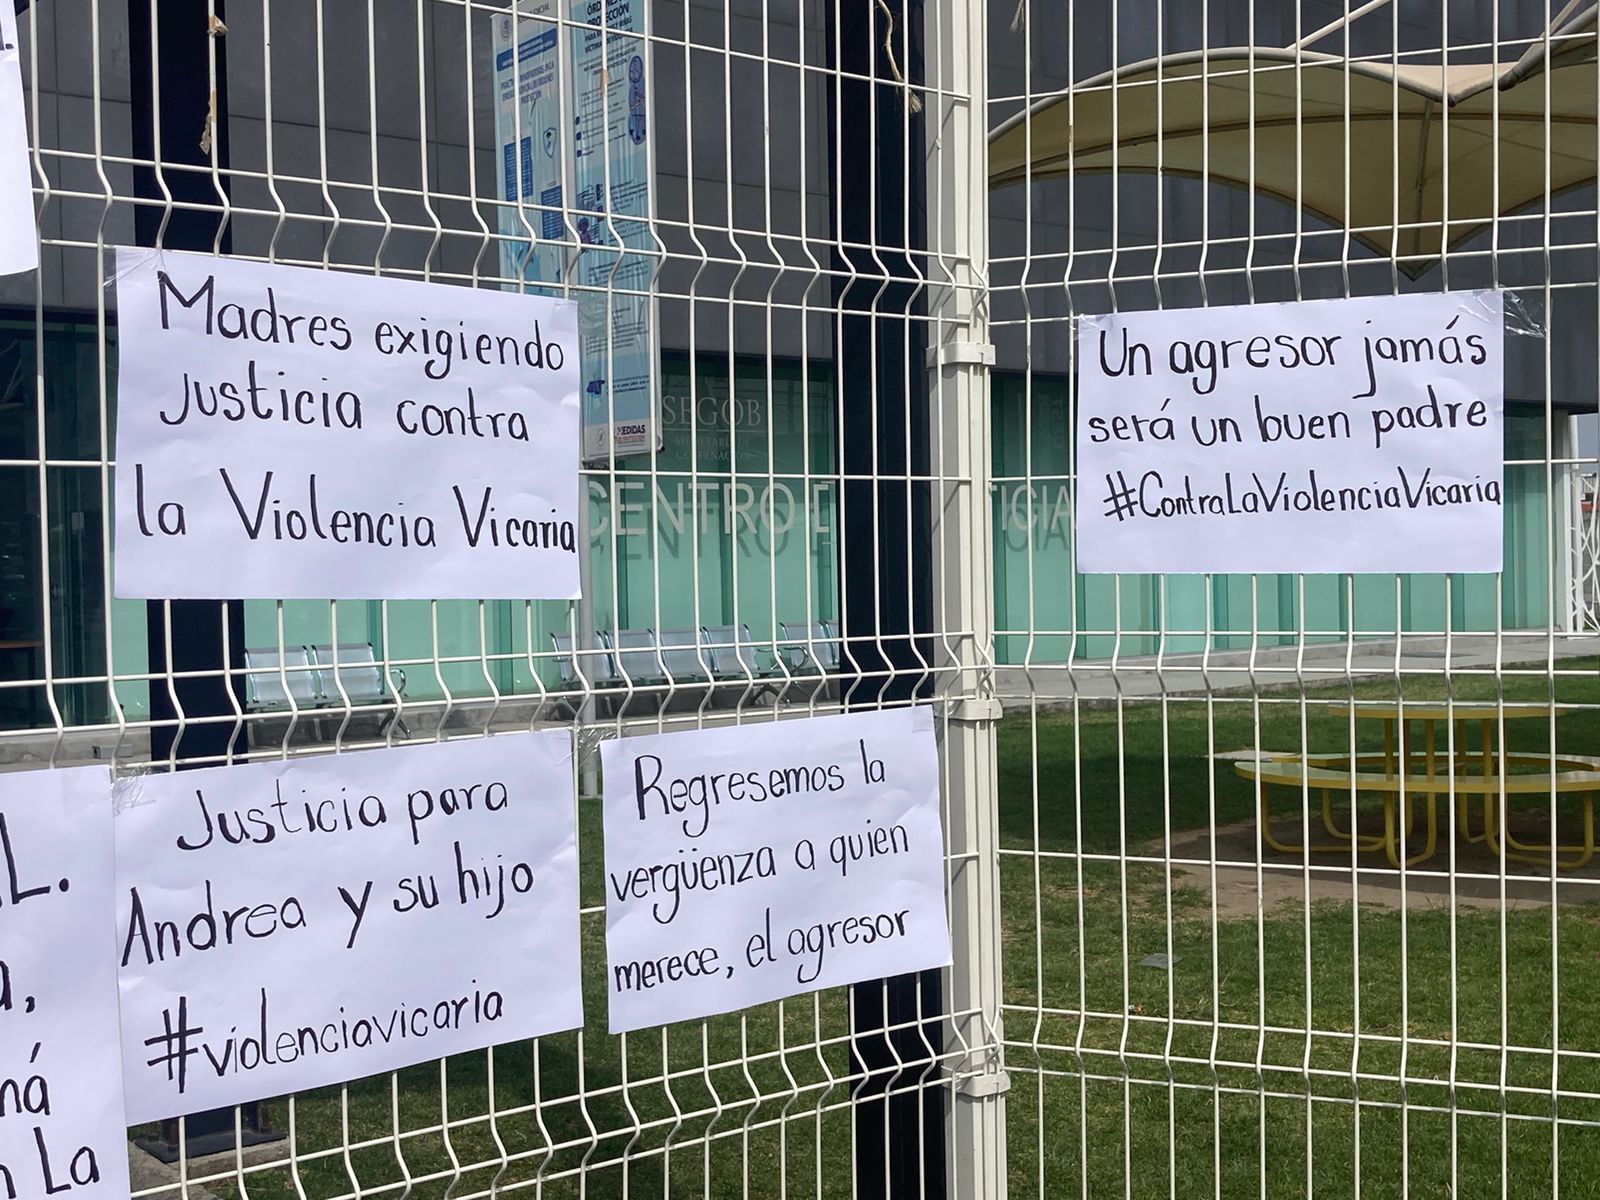 Madres exigiendo
Justicia contra
la Violencia Vicaria
Un agresor jamás
será un buen padre
#ContraLaViolenciaVicaria
SEGOB
SECRETARÍA DE
GOBERNACIÓN
CENTRO D
TICIA
MEDIDAS
Justicia para
Andrea y su hijo
#violenciavicaria
Regresemos la
vergüenza a quien
merece, el agresor
L.
a,
ná
n La